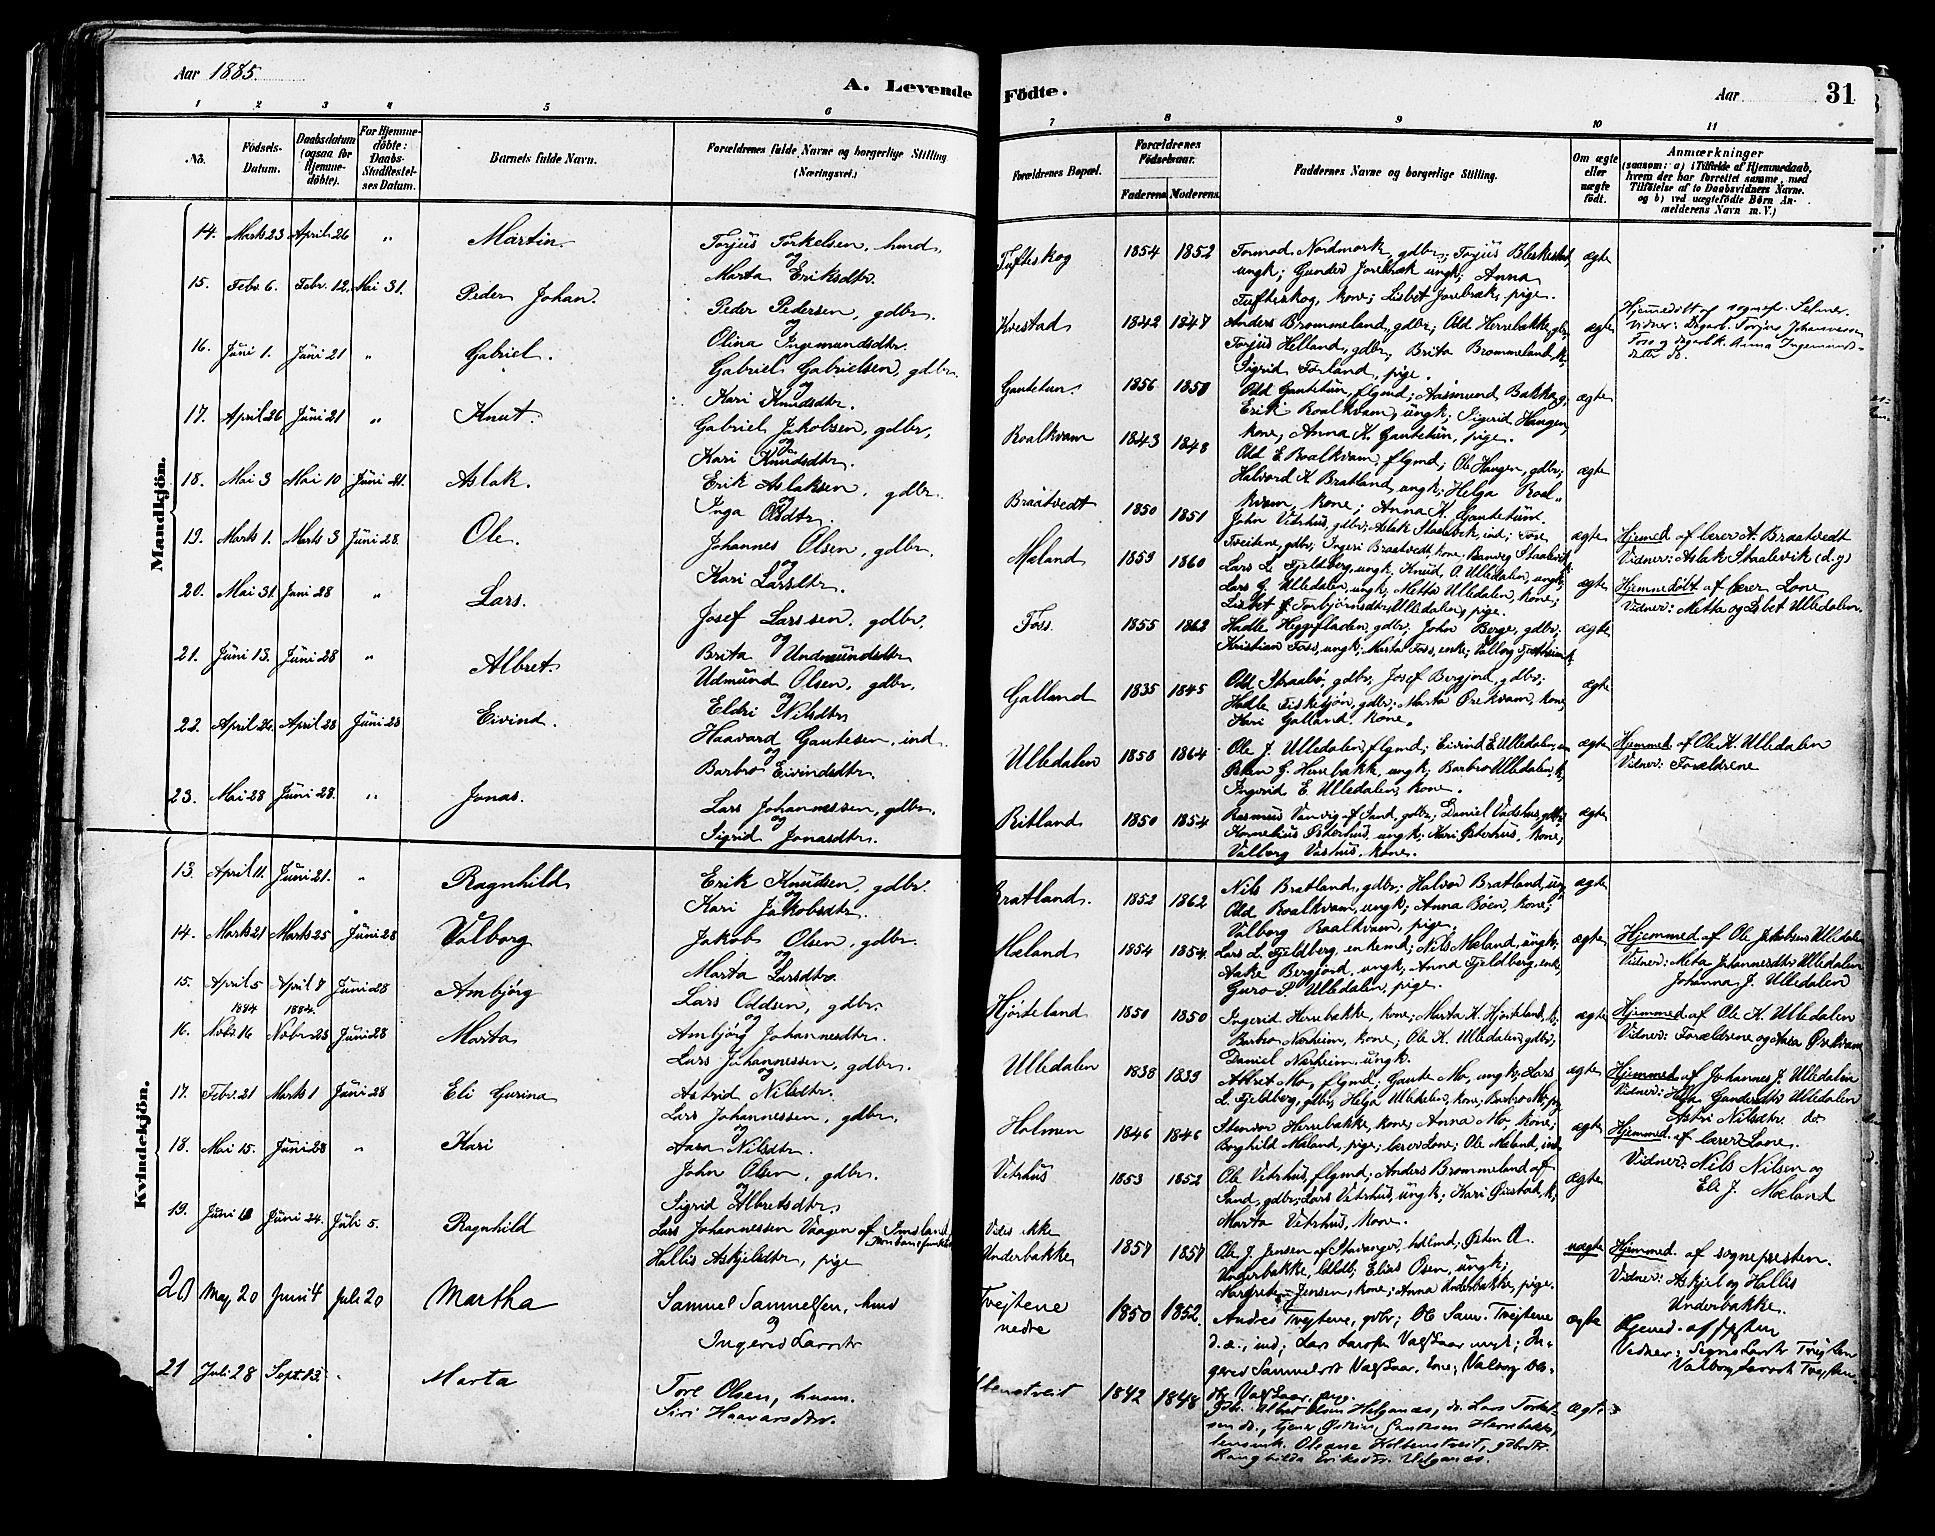 Aar 1885.
A. Levende Födte.
Aar
31
1 2 3 4 5 6 7 8 9 10 11
No.
Födsels-Datum.
Daabsdatum (ogsaa for Hjemmedöbte).
For Hjemmedöbte: Daabs-Stadfæstelses Datum.
Barnets fulde Navn.
Forældrenes fulde Navne og borgerlige Stilling (Næringsvei.)
Forældrenes Bopæl.
Forældrenes Födselsaar.
Faderens Moderens.
Faddernes Navne og borgerlige Stilling.
Om ægte eller uægte födt.
Anmærkninger
(saasom: a) i Tilfælde af Hjemmedaab, hvem der har forrettet samme, med Tilföielse af to Daabsvidners Navne. og b) ved uægtefödte Börn Anmelderens Navn m. V.)
Mandkjön.
14. Marts 23 April 26 " Martin. Torjus Torkelsen, husd. og Marta Eriksdtr. Tufteskog 1854 1852 Tormod Nordmork, gdbr; Torjus Bleskestad, ungk; Gunder Jorebræk ungk; Anna Tufteskog, kone; Lisbet Jorebræk, pige. ægte
15. Febr. 6. Febr. 12. Mai 31. Peder Johan. Peder Pedersen, gdbr. og Olina Ingemundsdtr. Kvestad 1842 1847 Anders Brommeland, gdbr; Odd Herrebakke, gbr, Torjus Helland, gdbr, Brita Brommeland, k, Sigrid Forland, pige. ægte Hjemmedöbt af sognepr. Selmer. Vidner: Torjus Johannessen Foss og Anna Ingemundsdatter do.
16. Juni 1. Juni 21 " Gabriel. Gabriel Gabrielsen, gdbr. og Kari Knudsdtr. Gautetun. 1856 1850 Odd Gautetun, flgmd; Aasmund Bakka, g, Erik Roalkvam, ungk; Sigerid Haugen, kone, Anna K. Gautetun, pige. ægte
17. April 26 Juni 21 " Knut. Gabriel Jakobsen, gdbr, og Kari Knudsdtr. Roalkvam 1843 1848 Odd E. Roalkvam, flgmd; Ole Haugen, gdbr; Halvord K. Bratland, ungk; Helga Roalkvam, kone; Anna K. Gautetun. ægte
18. Mai 3 Mai 10 Juni 21. Aslak. Erik Aslaksen, gdbr. og Inga Olsdtr. Braatvedt 1850 1851 John Vetrhus, gdbr; Aslak Staalevik, ind; Tore Tveitene, gdbr; Ingeri Braatvedt, kone; Staalevik ægte Hjemmed af lærer A. Braatvedt Vidner: Aslak Staalevik (d.g)
19. Marts 1. Marts 3 Juni 28. Ole. Johannes Olsen, gdbr. og Kari Larsdtr. Mæland 1859 1860 Lars L. Fjeldberg, ungk, Knud O. Ulledalen, ungk; Lars G. Ulledalen, ungk, Metta Ulledalen, kone; Lisbet Torbjørnsdtr Ulledalen, pige. ægte Hjemmedöbt af lærer Lone. Vidner: Metta og Lisbet Ulledalen.
20. Mai 31. Juni 28 " Lars. Josef Larssen. gdbr. og Brita Undmundsdtr Foss. 1855 1862 Hadle Heggefladen, gdbr; John Berge, gdbr; Kristian Foss, ungk; Marta Foss, enke; Valborg ægte
21. Juni 13. Juni 28 " Albret. Udmund Olsen, gdbr. og Eldri Nilsdtr Galland 1835 1845 Odd Straabø, gdbr, Josef Bergjord, gdbr; Hadle Fiskekjön, gdbr; Marta Ørekvam, kone, Kari Galland, kone. ægte
22. April 26. April 28 Juni 28 Eivind. Haavard Gautesen, ind. og Barbro Eivindsdtr. Ulledalen 1858 1864 Ole J. Ulledalen, flgmd; Eivind E. Ulledalen, Østen G. Herrebakk, ungk; Barbro Ulledalen k, Ingerid E. Ulledalen, kone. ægte Hjemmed. af Ole K. Ulledalen Vidner: Forældrene
23. Mai 28 Juni 28. " Jonas. Lars Johannessen, gdbr. og Sigrid Jonasdtr. Ritland 1850 1854 Rasmus Vanvig af Sand, gdbr, Daniel Vadshus, gdbr; Kornelius Østerhus, ungk; Kari Østerhus, kone, Valborg Vashus, kone. ægte
Kvindekjön.
13. April 11. Juni 21. " Ragnhild Erik Knudsen, gdbr. og Kari Jakobsdtr. Bratland. 1852 1862 Nils Bratland, gdbr; Halvor Bratland, ung, Odd Roalkvam, ungk; Anna Bøen, kone; Valborg Roalkvam, pige. ægte
14. Marts 21 Marts 25 Juni 28 Valborg Jakob Olsen, gdbr. og Marta Larsdtr. Mæland 1854 1854 Lars L. Fjeldberg, enkemd; Nils Mæland, ungk; Aake Bergjord, ungk; Anna Fjeldberg, enke, Guro S. Ulledalen, pige. ægte Hjemmed af Ole Jakobsen Ulledalen Vidner: Meta Johannesdtr Ulledalen Johanna J. Ulledalen
15. April 5 April 7 Juni 28 Ambjörg Lars Oddsen, gdbr. og Ambjörg Johannesdtr. Hjorteland 1850 1850 Ingerid Herrebakke, kone; Marta K. Hjorteland, k; Barbro Nærheim, kone; Ole K. Ulledalen, gdbr, Daniel Nærheim, ungk. ægte Hjemmed. af Ole K. Ulledalen Vidner: Forældrene og Aasa Ørekvam
16. 1884 Novbr. 16 1884. Novbr 23 Juni 28 Marta Lars Johannessen, gdbr. og Astrid Nilsdtr. Ulledalen 1838 1839 Albret Mo, flgmd; Gaute Mo, ungk; Lars L. Fjeldberg, gdbr, Helga Ulledalen, kone; Barbro Mo, pg ægte Hjemmed af Johannes J. Ulledalen Vidner: Helga Gundersdtr Ulledalen Astri Nilsdtr do
17. Febr. 21 Marts 1 Juni 28 Eli Gurina Lars Johannessen, gdbr. og Aasa Nilsdtr. Holmen 1846 1846 Steinvor Herrebakke, kone; Anna Mo, kone; Borghild Mæland, pige; lærer Lone; Ole Mæland, ind. ægte Hjemmed. af lærer Lone. Vidner: Nils Nilsen og Eli J. Mæland
18. Mai 15. Juni 28 " Kari John Olsen, gdbr. og Sigrid Albretsdtr. Vetrhus 1853 1852 Ole Vetrhus, flgmd; Anders Brommeland af Sand, gdbr; Lars Vetrhus, ungk; Kari Øvstabø, k, Marta Vetrhus, kone. ægte
19. Juni Juni 24. Juli 5. Ragnhild Lars Johannessen Vaagen af Imsland, Hallis Askjelsdtr, pige Vides ikke Underbakke 1857 1857 Ole J. Jensen af Stavanger, Østen A. Underbakke, Elias Osen, ungk; Margrete Jensen, kone; Anna Underbakke, pige. uægte Hjemmed. af sognepresten. Vidner: Askjel og Hallis Underbakke.
20 Maj 20 Juni 4 Juli 20 Martha Samuel Samuelsen, husd og Ingerid Larsdtr Tvejtene nedre 1850 1852. Andres Tvejtene, gdbr; Ole Sam. Tvejtene d.æ., ind; Lars Larsen Valskaar ungk; Ingerid Samuelsdt Valskaar, kone; Valborg Olsdtr Valskaar, pige. ægte Hjemmed. af spsten Vidner: Signe Larsdtr Tvejten Valborg Larsdt Tvejten.
21 Juli 28 Sept. 13. " Marta Tore Olsen, husm. Siri Haavarsdtr. Holtenstveit 1842 1848 Gdbr. Albret Olsen Helganes, do. Lars Torkelsen do., tjener Østein Gautesen Herrebakke, Oleane Holtenstveit, gdbdtr. Ranghilda Eriksdtr. Helganes. ægte